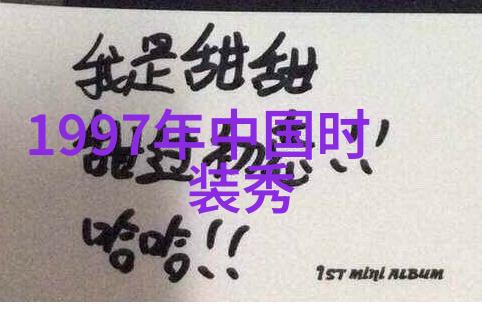 我是甜甜
1997年中国时
甜过初恋!!
装秀
哈哈!!
1ST MINI ALBUM